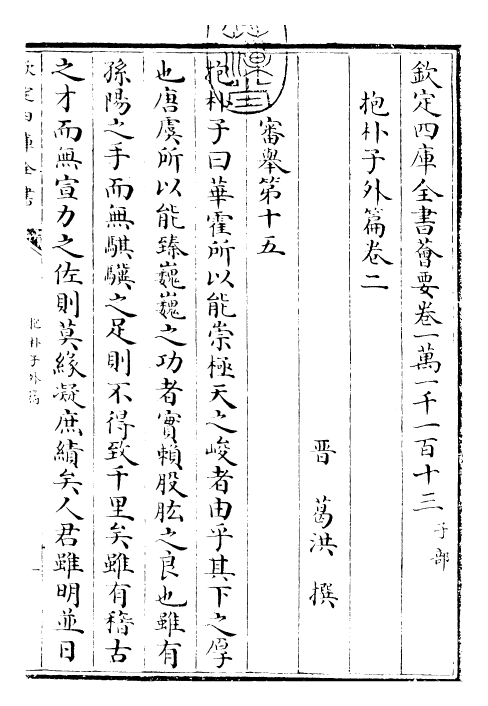 欽定四庫全書薈要卷一萬一千一百十三 子部
抱朴子外篇卷二
晋 葛洪 撰
審舉第十五
抱朴子曰華霍所以能崇極天之峻者由乎其下之厚
也唐虞所以能臻巍巍之功者實賴股肱之良也雖有
孫陽之手而無騏驥之足則不得致千里矣雖有稽古
之才而無宣力之佐則莫緣凝庶績矣人君雖明並日
欽定四庫全書
抱朴子外篇